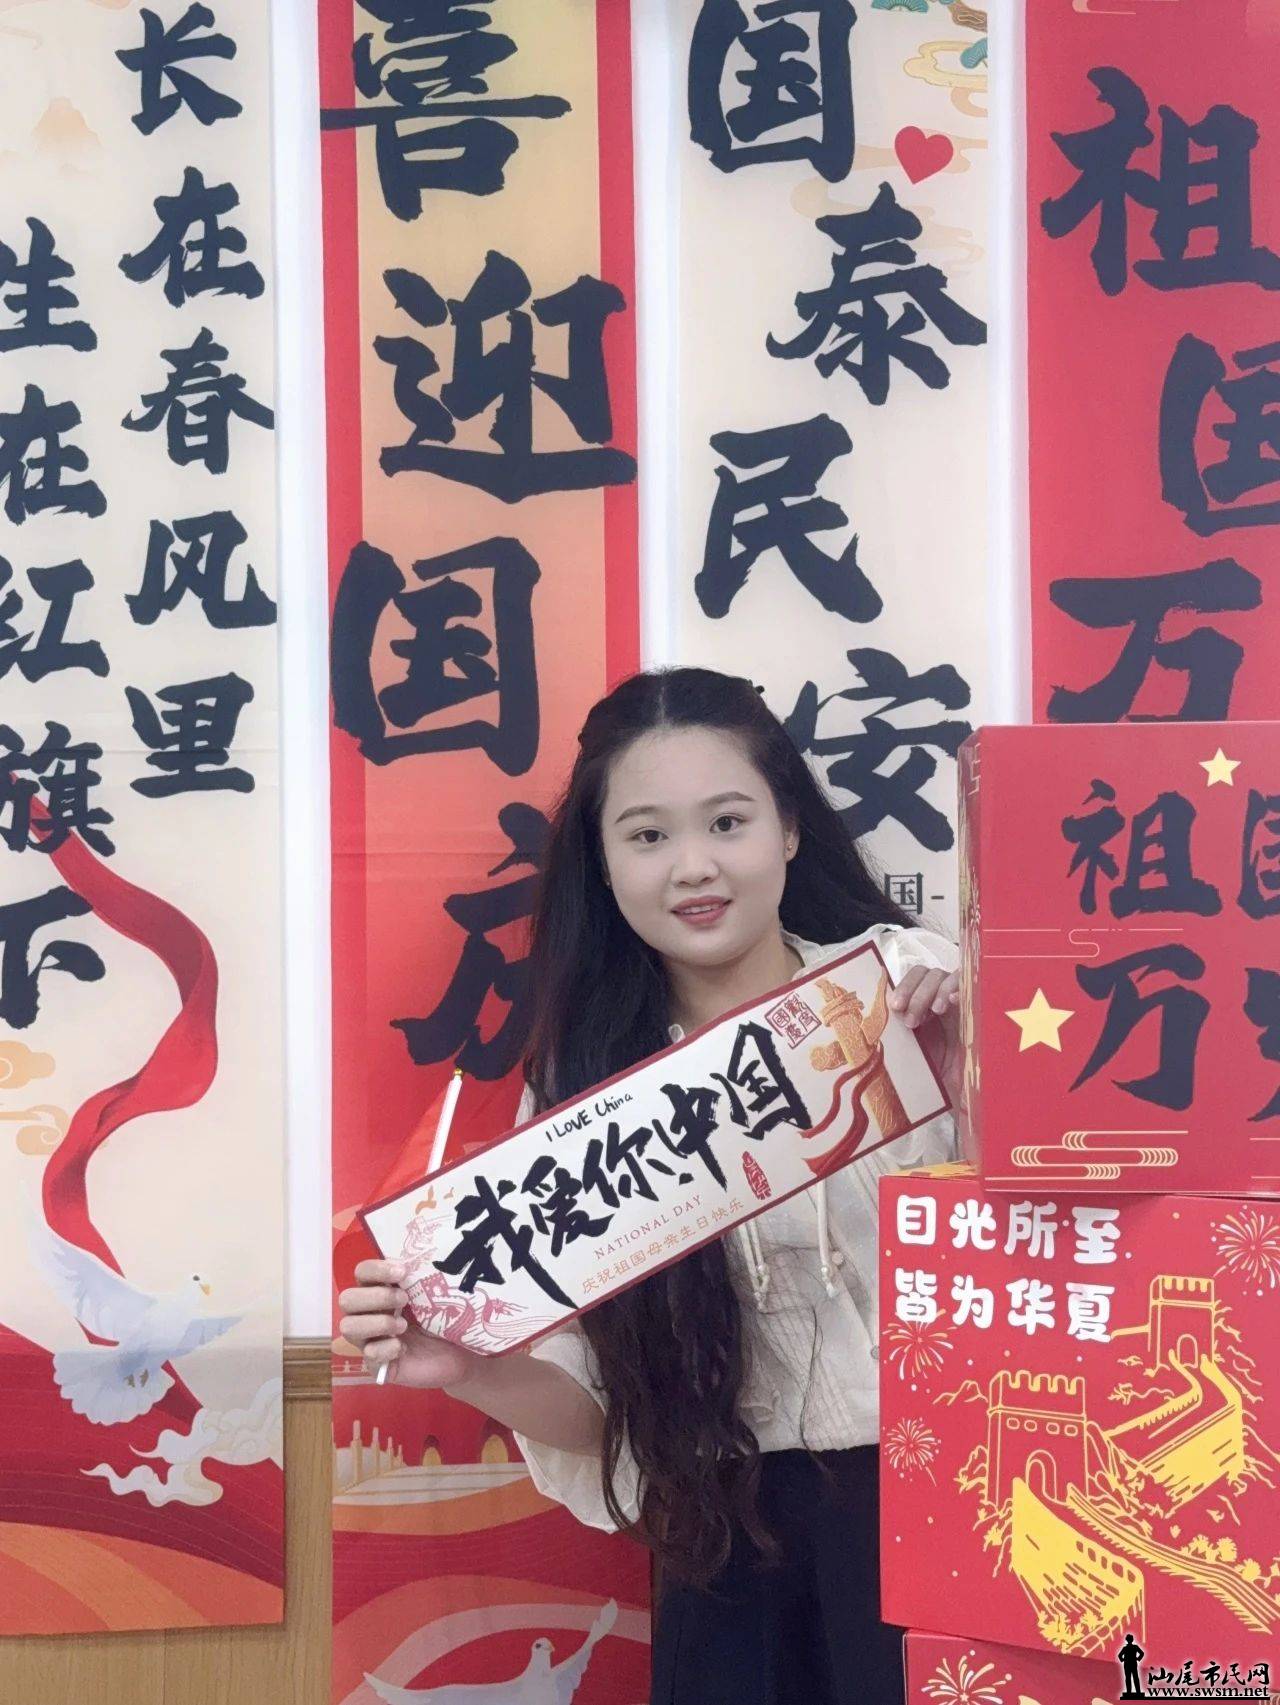 生在红旗下
长在春风里
喜迎国庆
国泰民安
国-
祖国万
祖国
万岁
I LOVE China
我爱你中国
NATIONAL DAY
庆祝祖国母亲生日快乐
目光所至
皆为华夏
汕尾市民网
www.swsm.net